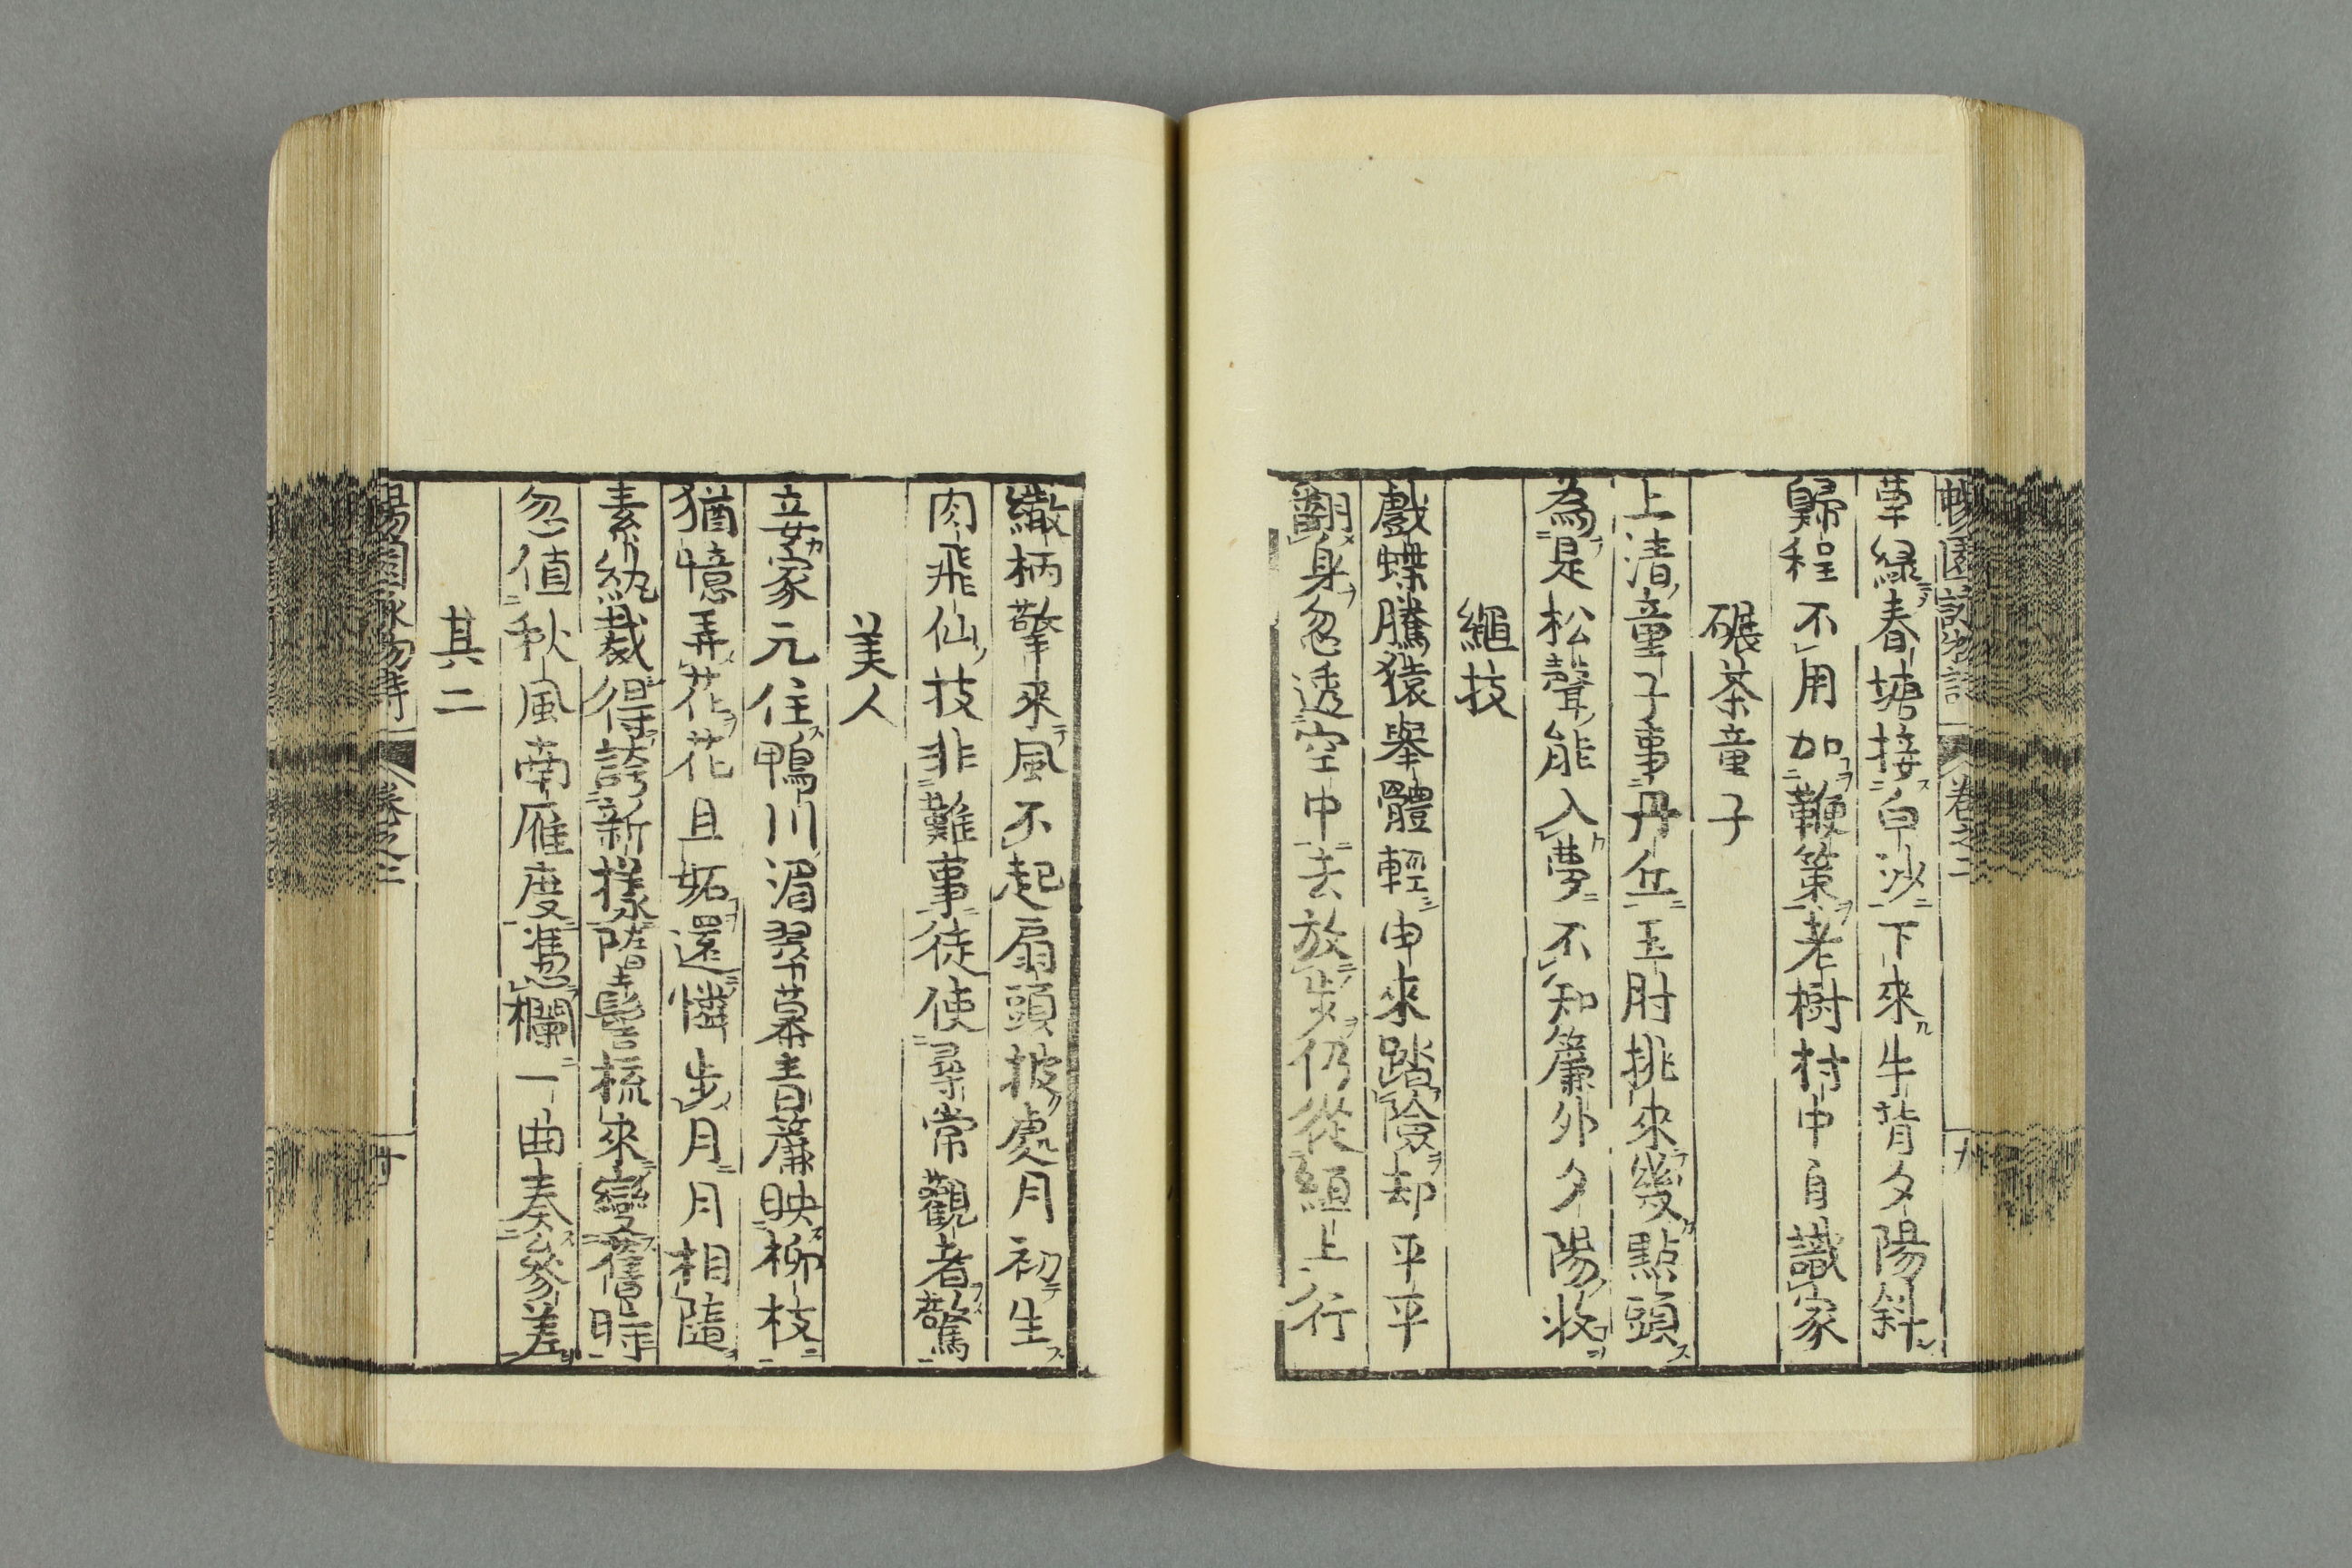 草緑春塘接白沙下來牛背夕陽斜
歸程不用加鞭策老樹村中自識家
碾茶童子
上清童子事丹丘玉肘挑來幾點頭
為是松聲能入夢不知簾外夕陽收
繩技
戲蝶騰猿擧體輕由來踏險却平平
翻身忽透空中去放步仍從絚上行
繖柄擎來風不起扇頭披處月初生
肉飛仙技非難事徒使尋常觀者驚
美人
妾家元住鴨川湄翠幕青簾映柳枝
猶憶弄花花且妬還憐步月月相隨
素紈裁得誇新樣階髻梳來變舊時
忽値秋風南雁度憑欄一曲奏參差
其二
卷之二